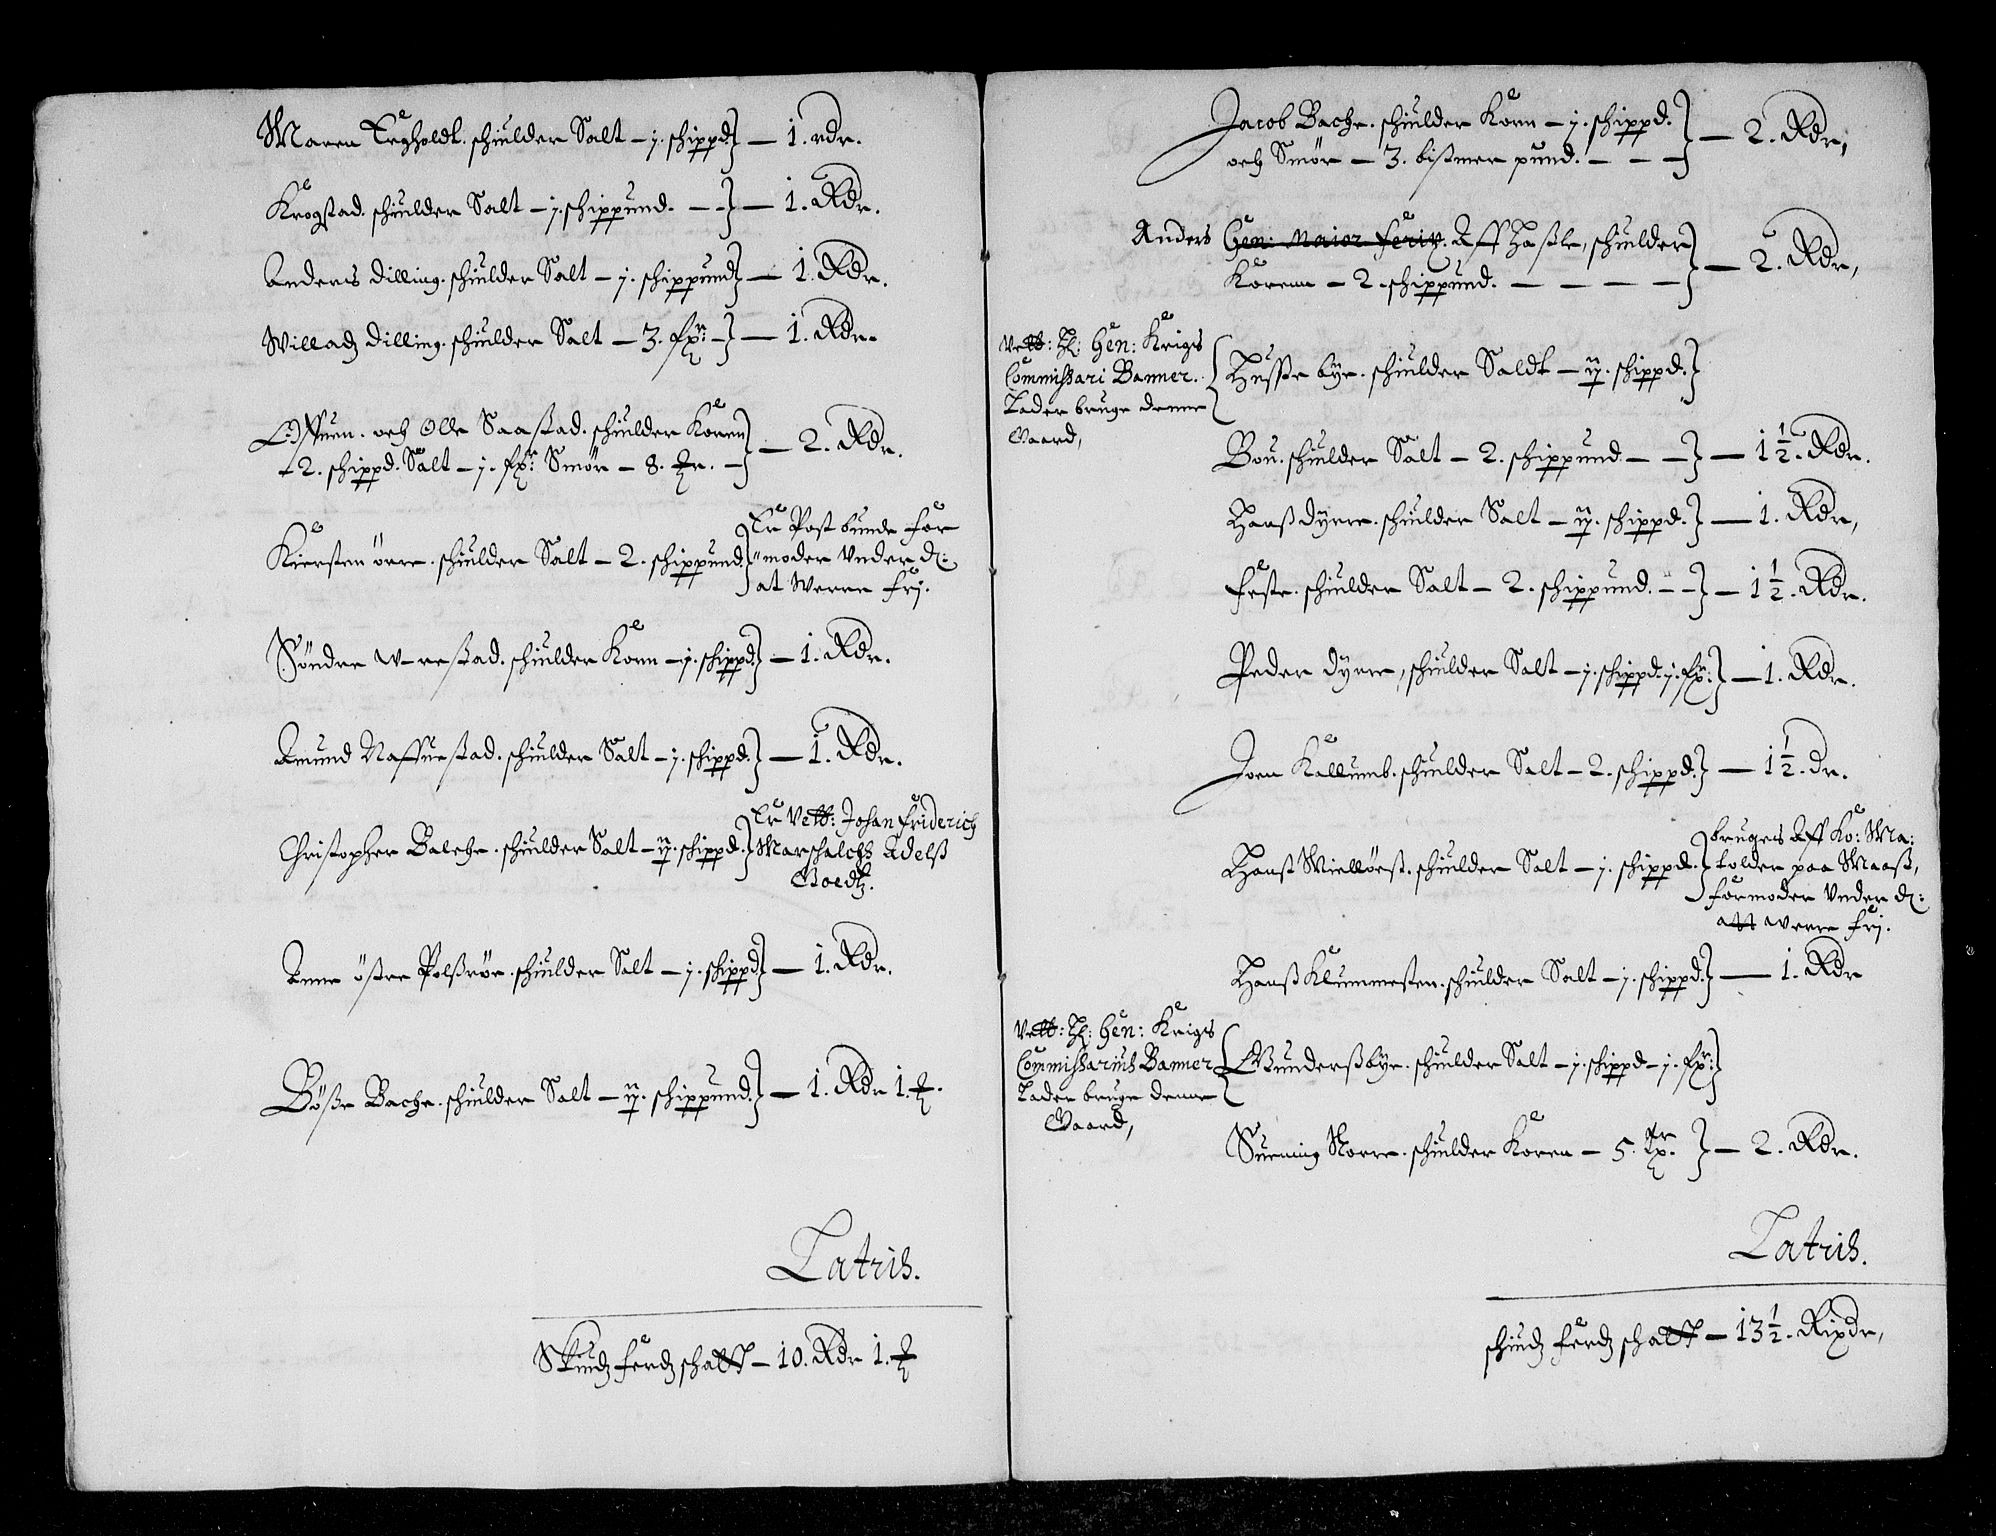 Maren Regholdt. schiulder Salt – j. schippd. – 1. rdr.
Krogstad. schiulder Salt – j. schippund. – – – 1. Rdr.
Anders Dilling. schiulder Salt – j. schippund – 1. Rdr.
Willadz Dilling. schiulder Salt – 3. fr: – – 1. Rdr.
och Olle Saastad. schiulder Koren
2. schippd. Salt – j. fr: Smör – 8. – 2. Rdr.
Kiersten örre. schiulder Salt – 2. schippund.
Er Post bunde for
moder Vnder d:
at Werre frj.
Söndre W-restad. schiulder Korn – j. schippd. – 1. Rdr.
Amund Naffuestad. schiulder Salt – j. schippd. – 1. Rdr.
Christopher Balche. schiulder Salt – ij. schippd.
Er Velb: Johan Friderich
Marschalchs Adelß
Goedtz.
Anne östre Polßröe. schiulder Salt – j. schippd – 1. Rdr.
Böße Bache. schiulder Salt – ij. schippund. – 1. Rdr 1.
Latris.
Skiudz ferdz schatt – 10. Rdr 1.
Jacob Bache. schiulder Korn – j. schippd.
och Smör – 3. bißmer pund. – – – 2. Rdr,
Anders Gen: Maior feritz. Aff Haßle, schiulder
Korenn – 2. schippund. – – – – – 2. Rdr,
Velb: H: Gen: Krigs
Commissari Banner.
Lader bruge denne
Gaard,
Husse bye. schiulder Saldt – ij. schippd.
Bou. schiulder Salt – 2. schippund – – – 1 1/2. Rdr.
Hanß Dyrre. schiulder Salt – ij. schippd. – 1. Rdr,
Feste. schiulder Salt – 2. schippund. – – – 1 1/2. Rdr.
Peder Dyrre, schiulder Salt – j. schippd. j. fr: – 1. Rdr.
Joen Kallumb. schiulder Salt – 2. schippd. – 1 1/2. dr.
Hanß Miellöest. schiulder Salt – j. schippd.
bruges Aff Ko: Ma:
tolder paa Maaß,
formoder Vnder d:
att werre frj.
Hanß Klummesten. schiulder Salt – j. schippd. – 1. Rdr
Velb: H: Gen: Krigs
Commissarius Banner
Lader bruge denne
Gaard,
Gunderßbye. schiulder Salt – j. schippd – j. fr:
Suening Norre. schiulder Koren – 5. – 2. Rdr.
Latris.
schiudz ferdz schatt – 13 1/2. Rixdr,